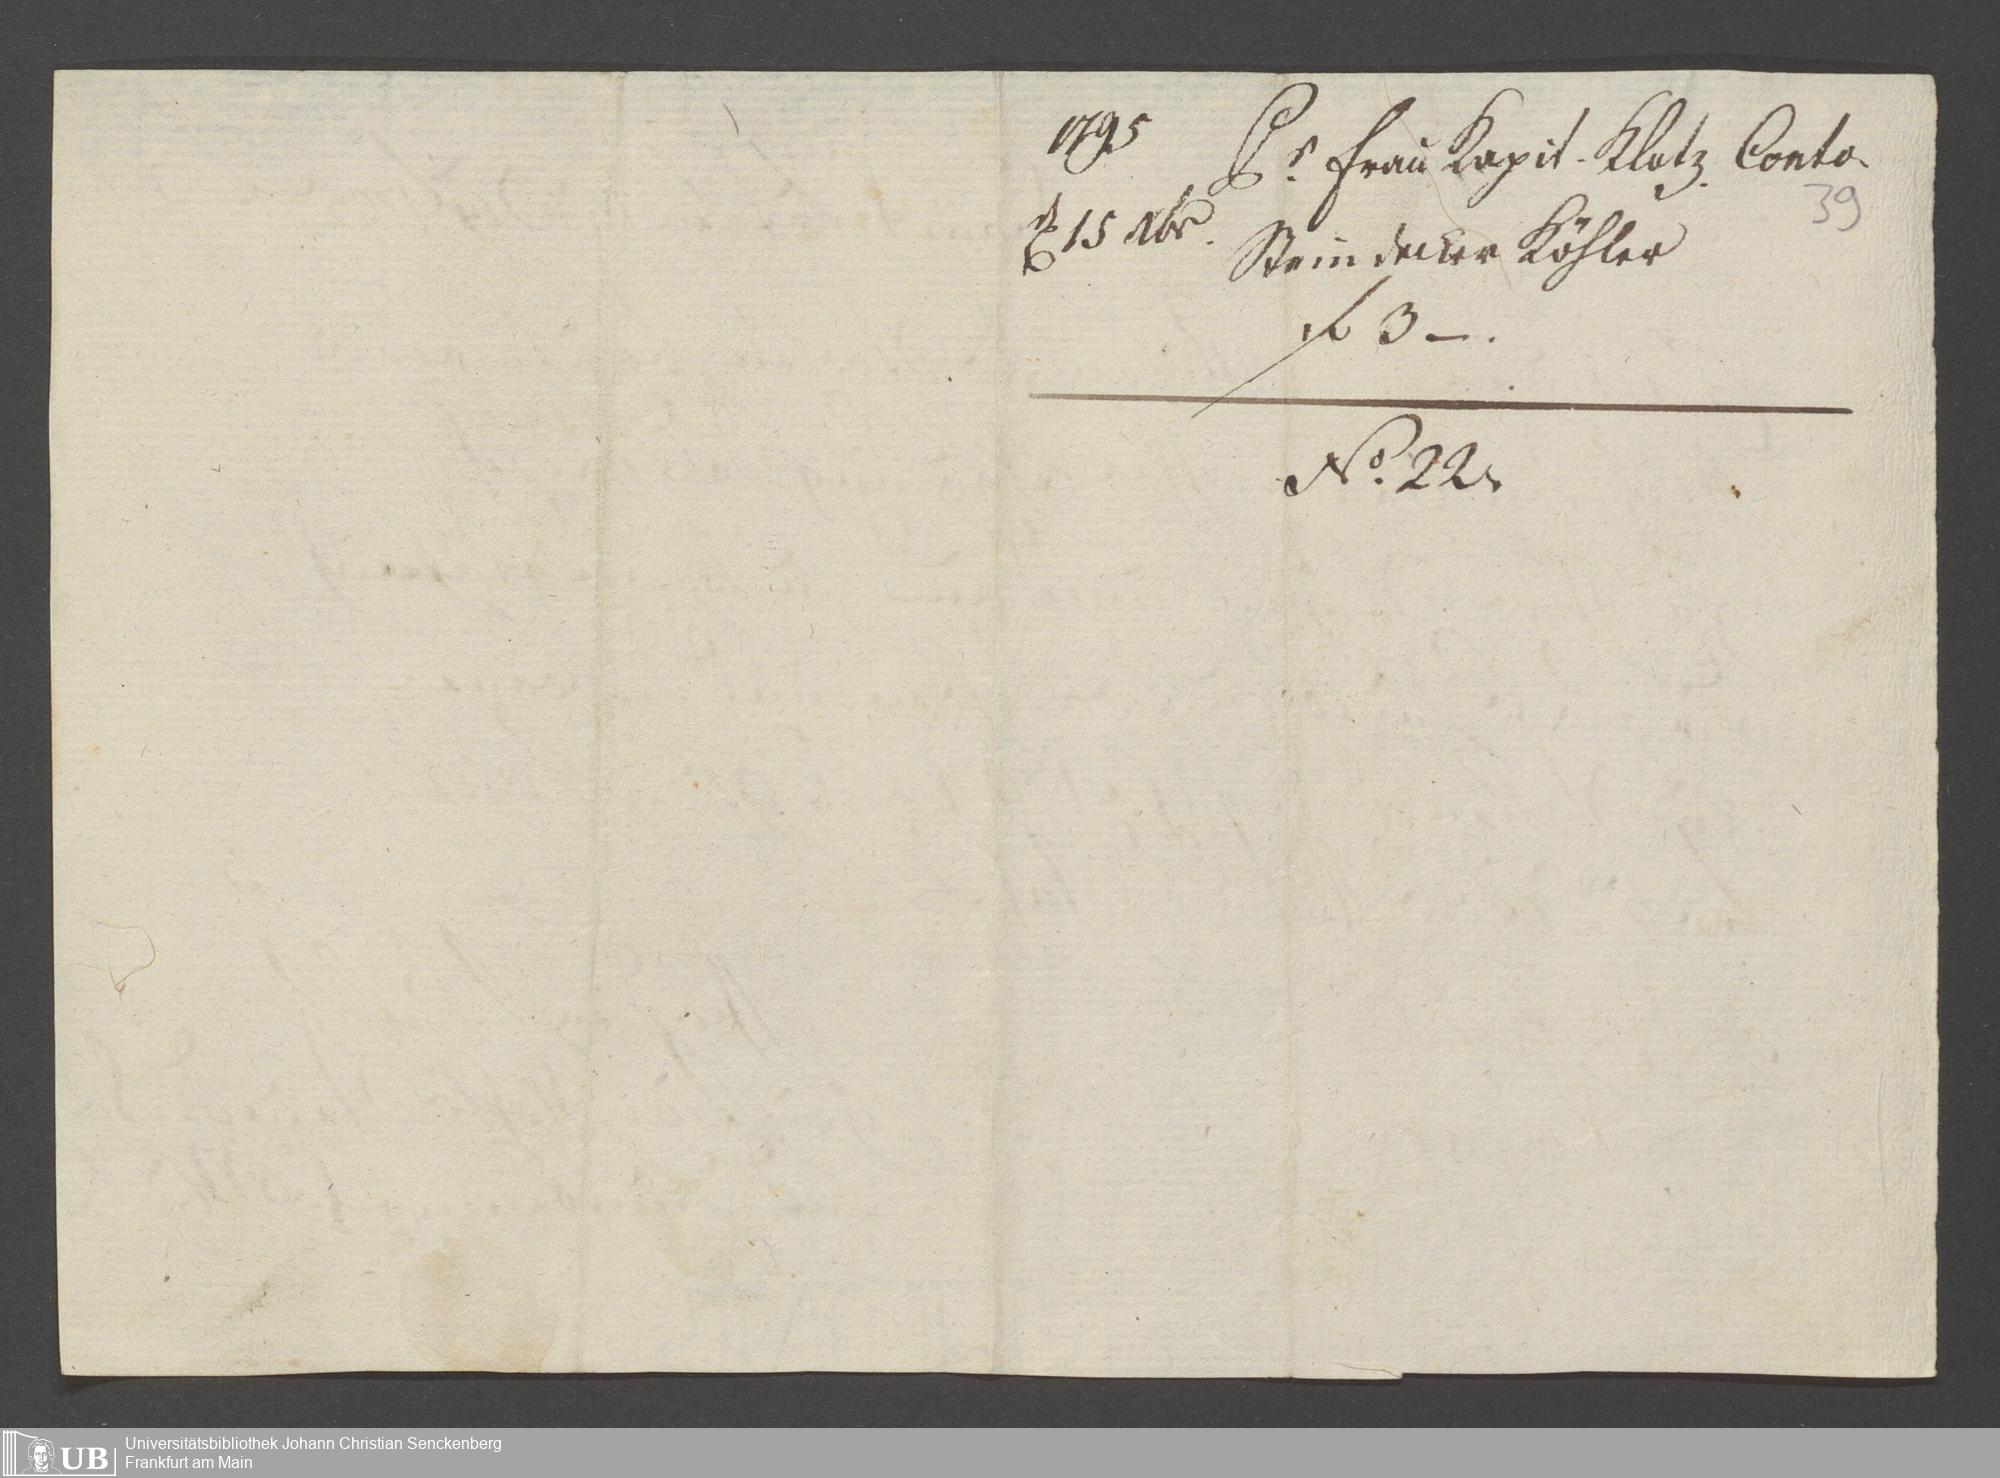 1795 Pr. Frau Kapit. Klotz Conto.
39
d 15 Nbr. Steindecker Köhler
f 3 —.
No. 22.
UB
Universitätsbibliothek Johann Christian Senckenberg
Frankfurt am Main